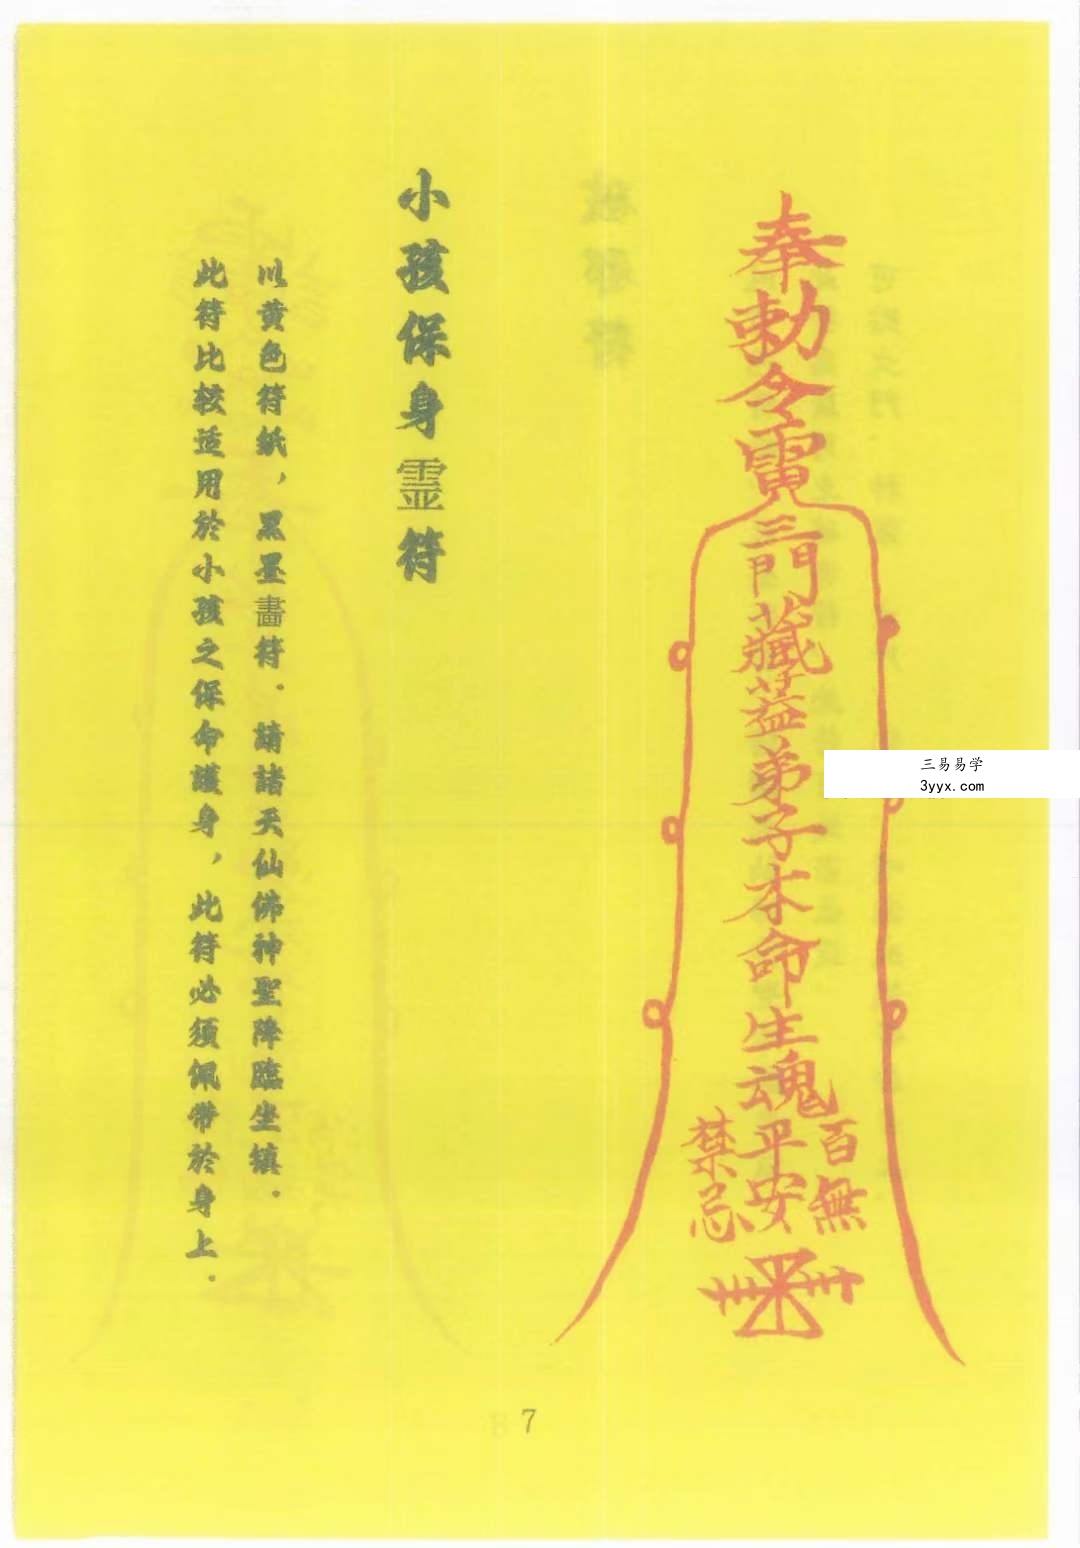 奉勅令雷
三門藏蓋弟子本命生魂
百無
平安
禁忌
小孩保身霊符
以黄色符紙，黑墨畵符．請諸天仙佛神聖降臨坐鎮．
此符比较适用於小孩之保命護身，此符必须佩带於身上．
三易易学
3yyx.com
7